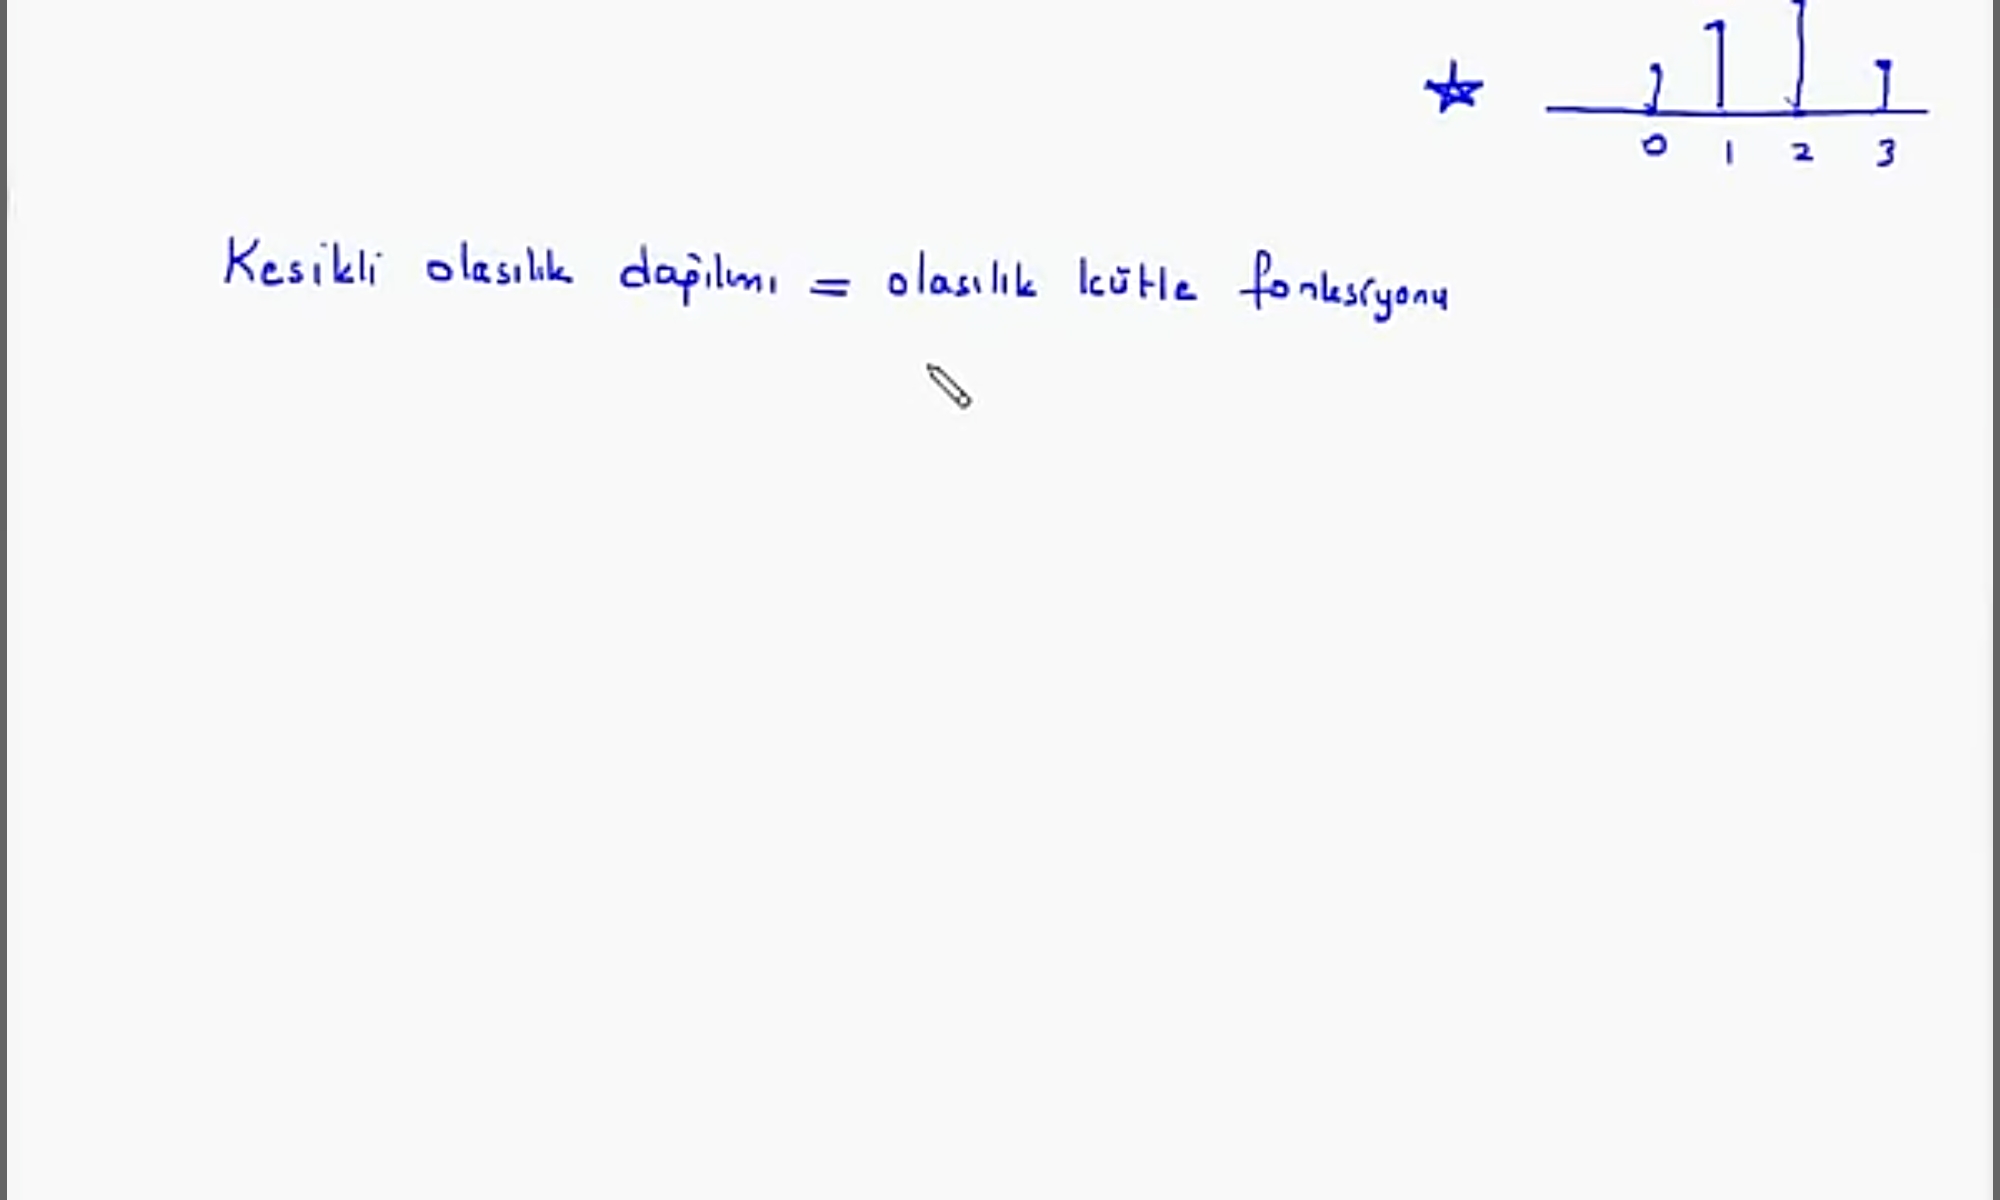 0 1 2 3
Kesikli olasılık dağılımı = olasılık kütle fonksiyonu